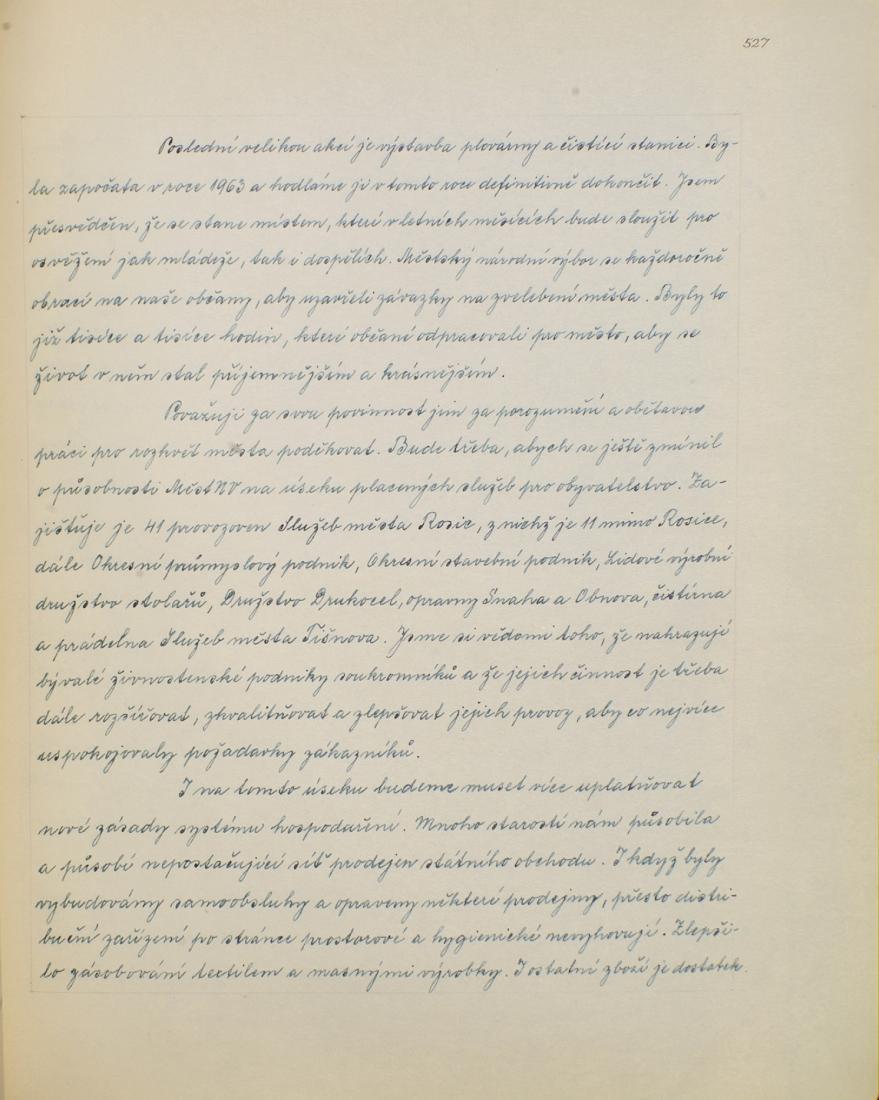 527
Poslední velikou akcí je výstavba plovárny a čistící stanici. By-
la započata v roce 1963 a hodláme ji v tomto roce definitivně dokončit. Jsem
přesvědčen, že se stane místem, které v letních měsících bude sloužit pro
osvěžení jak mládeže, tak i dospělích. Městský národní výbor se každoročně
obrací na naše občany, aby uzavřeli závazky na zvelebení města. Byly to
již tisíce a tisíce hodin, které občané odpracovali pro město, aby se
život v něm stal příjemnějším a krásnějším.
Považuji za svou povinnost jim za porozumění a obětavou
práci pro rozkvět města poděkovat. Bude třeba, abych se ještě zmínil
o působnosti MěstNV na úseku placených služeb pro obyvatelstvo. Za-
jišťuje je 41 provozoven Služeb města Rosic, z nichž je 11 mimo Rosice,
dále Okresní průmyslový podnik, Okresní stavební podnik, Lidové výrobní
družstvo stolařů, Družstvo Drukocel, opravny Snaha a Obnova, čistírna
a prádelna Služeb města Tišnova. Jsme si vědomi toho, že nahrazují
bývalé živnostenské podniky soukromníků a že jejich činnost je třeba
dále rozšířovat, zkvalitňovat a zlepšovat jejich provoz, aby co nejvíce
uspokojovaly požadavky zákazníků.
I na tomto úseku budeme muset více uplatňovat
nové zásady systému hospodaření. Mnoho starostí nám působila
a působí nepostačující síť prodejen státního obchodu. I když byly
vybudovány samoobsluhy a opraveny některé prodejny, přesto distri-
buční zařízení po stránce prostorové a hygienické nevyhovují. Zlepši-
lo zásobování textilem a masnými výrobky. I ostatní zboží je dostatek.